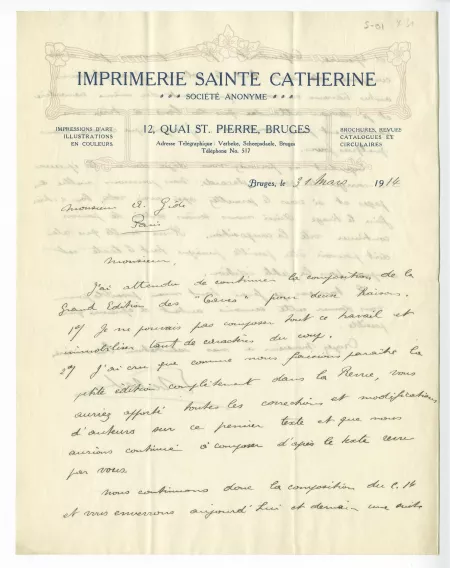 IMPRIMERIE SAINTE CATHERINE
SOCIÉTÉ ANONYME
IMPRESSIONS D'ART
ILLUSTRATIONS
EN COULEURS
12, QUAI ST. PIERRE, BRUGES
Adresse Télégraphique: Verbeke, Scheepsdaele, Bruges
Téléphone No. 517
BROCHURES, REVUES
CATALOGUES ET
CIRCULAIRES
Bruges, le 31 Mars 1914
Monsieur A. Gide
Paris
Monsieur,
J'ai attendu de continuer la composition de la
Grand Edition des "Caves" pour deux Raisons.
1o/ Je ne pouvais pas composer tout ce travail et
immobiliser tant de caractères du coup.
2o/ J'ai cru que comme nous faisions paraître la
petite édition complètement dans la Revue, vous
auriez apporté toutes les corrections et modifications
d'auteurs sur ce premier texte et que nous
aurions continué à composer d'après le texte revu
par vous.
Nous continuons donc la composition du C. 14
et vous enverrons aujourd'hui et demain une